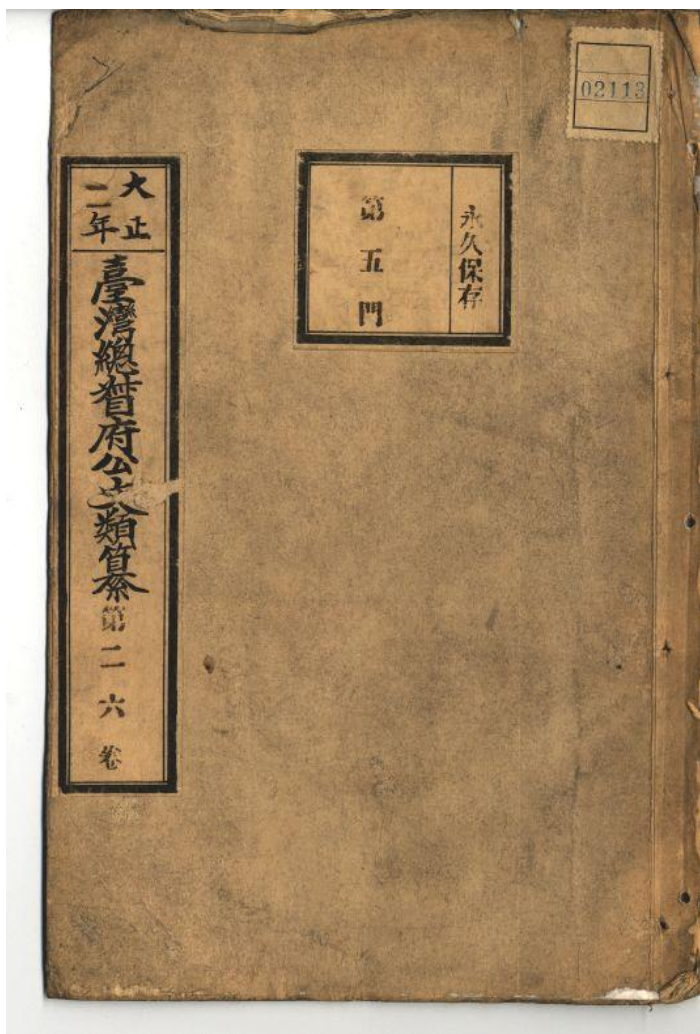 02113
永久保存
第五門
大正
二年
臺灣總督府公文類纂第二六卷